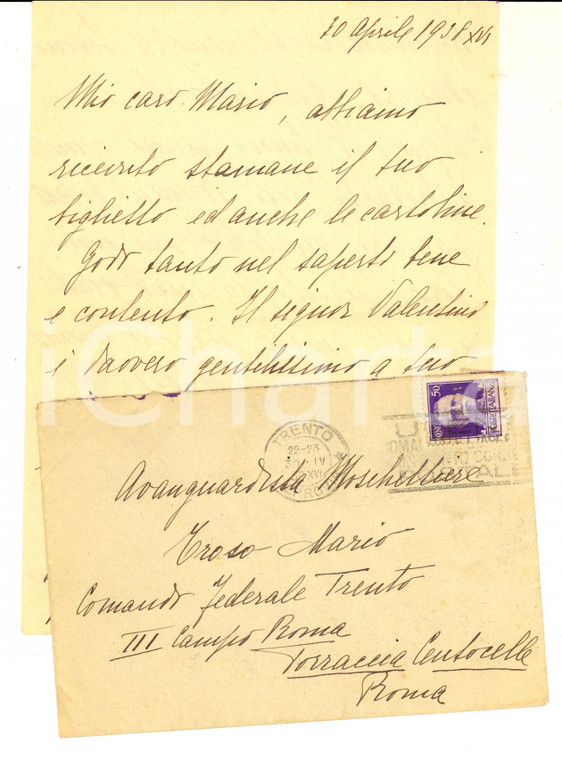 30 Aprile 1938 XVI
Mio caro Mario, abbiamo
ricevuto stamane il tuo
biglietto ed anche le cartoline.
Godo tanto nel saperti bene
e contento. Il signor Valentino
è davvero gentilissimo a tuo
iCharta
50
TRENTO
22-23
IV
XVI
FERROVIA
Avanguardista Moschettiere
Eroso Mario
Comando Federale Trento
III Campo Roma
Torraccia Centocelle
Roma